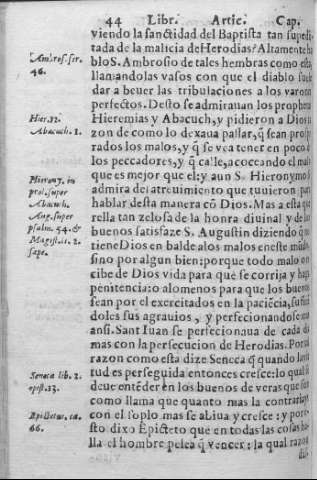 44 Libr. Artic. Cap.
viendo la sanctidad del Baptista tan supedi
tada de la malicia de Herodias? Altamente ha
Ambros. ser. 46.
bló S. Ambrosio de tales hembras como esta
llamandolas vasos con que el diablo sue
dar a beuer las tribulaciones a los varon
perfectos. Desto se admirauan los propheta
Hier. 12. Abacuch. 1.
Hieremias y Abacuch, y pidieron a Dios
zon de como lo dexaua passar, q̃ sean prosp
rados los malos, y q̃ se vea tener en poco
los peccadores, y q̃ calle, acoceando el mal
que es mejor que el: y aun S. Hieronymo
Hierony. in prol. super Abacuch. Aug. super psalm. 54. & Magist. li. 2. sape.
admira del atreuimiento que tuuieron par
hablar desta manera cõ Dios. Mas a esta que
rella tan zelosa de la honra diuinal y de los
buenos satisfaze S. Augustin diziendo q̃
tiene Dios en balde a los malos en este mũdo
sino por algun bien: porque todo malo
cibe de Dios vida para que se corrija y haga
penitencia: o alomenos para que los buenos
sean por el exercitados en la paciẽcia, sufriẽ
doles sus agrauios, y perfecionandose
ansi. San Iuan se perfecionaua de cada dia
mas con la persecucion de Herodias. Por
razon como esta dize Seneca q̃ quando la vir
Seneca lib. 2. epist. 13.
tud es perseguida entonces cresce: lo qual
deue entẽder en los buenos de veras que son
como llama que quanto mas la contrasta
Epictetus. ca. 66.
con el soplo mas se abiua y cresce: y por
sto dixo Epicteto que en todas las cosas ha
lla el hombre pelea q̃ vencer: la qual razon